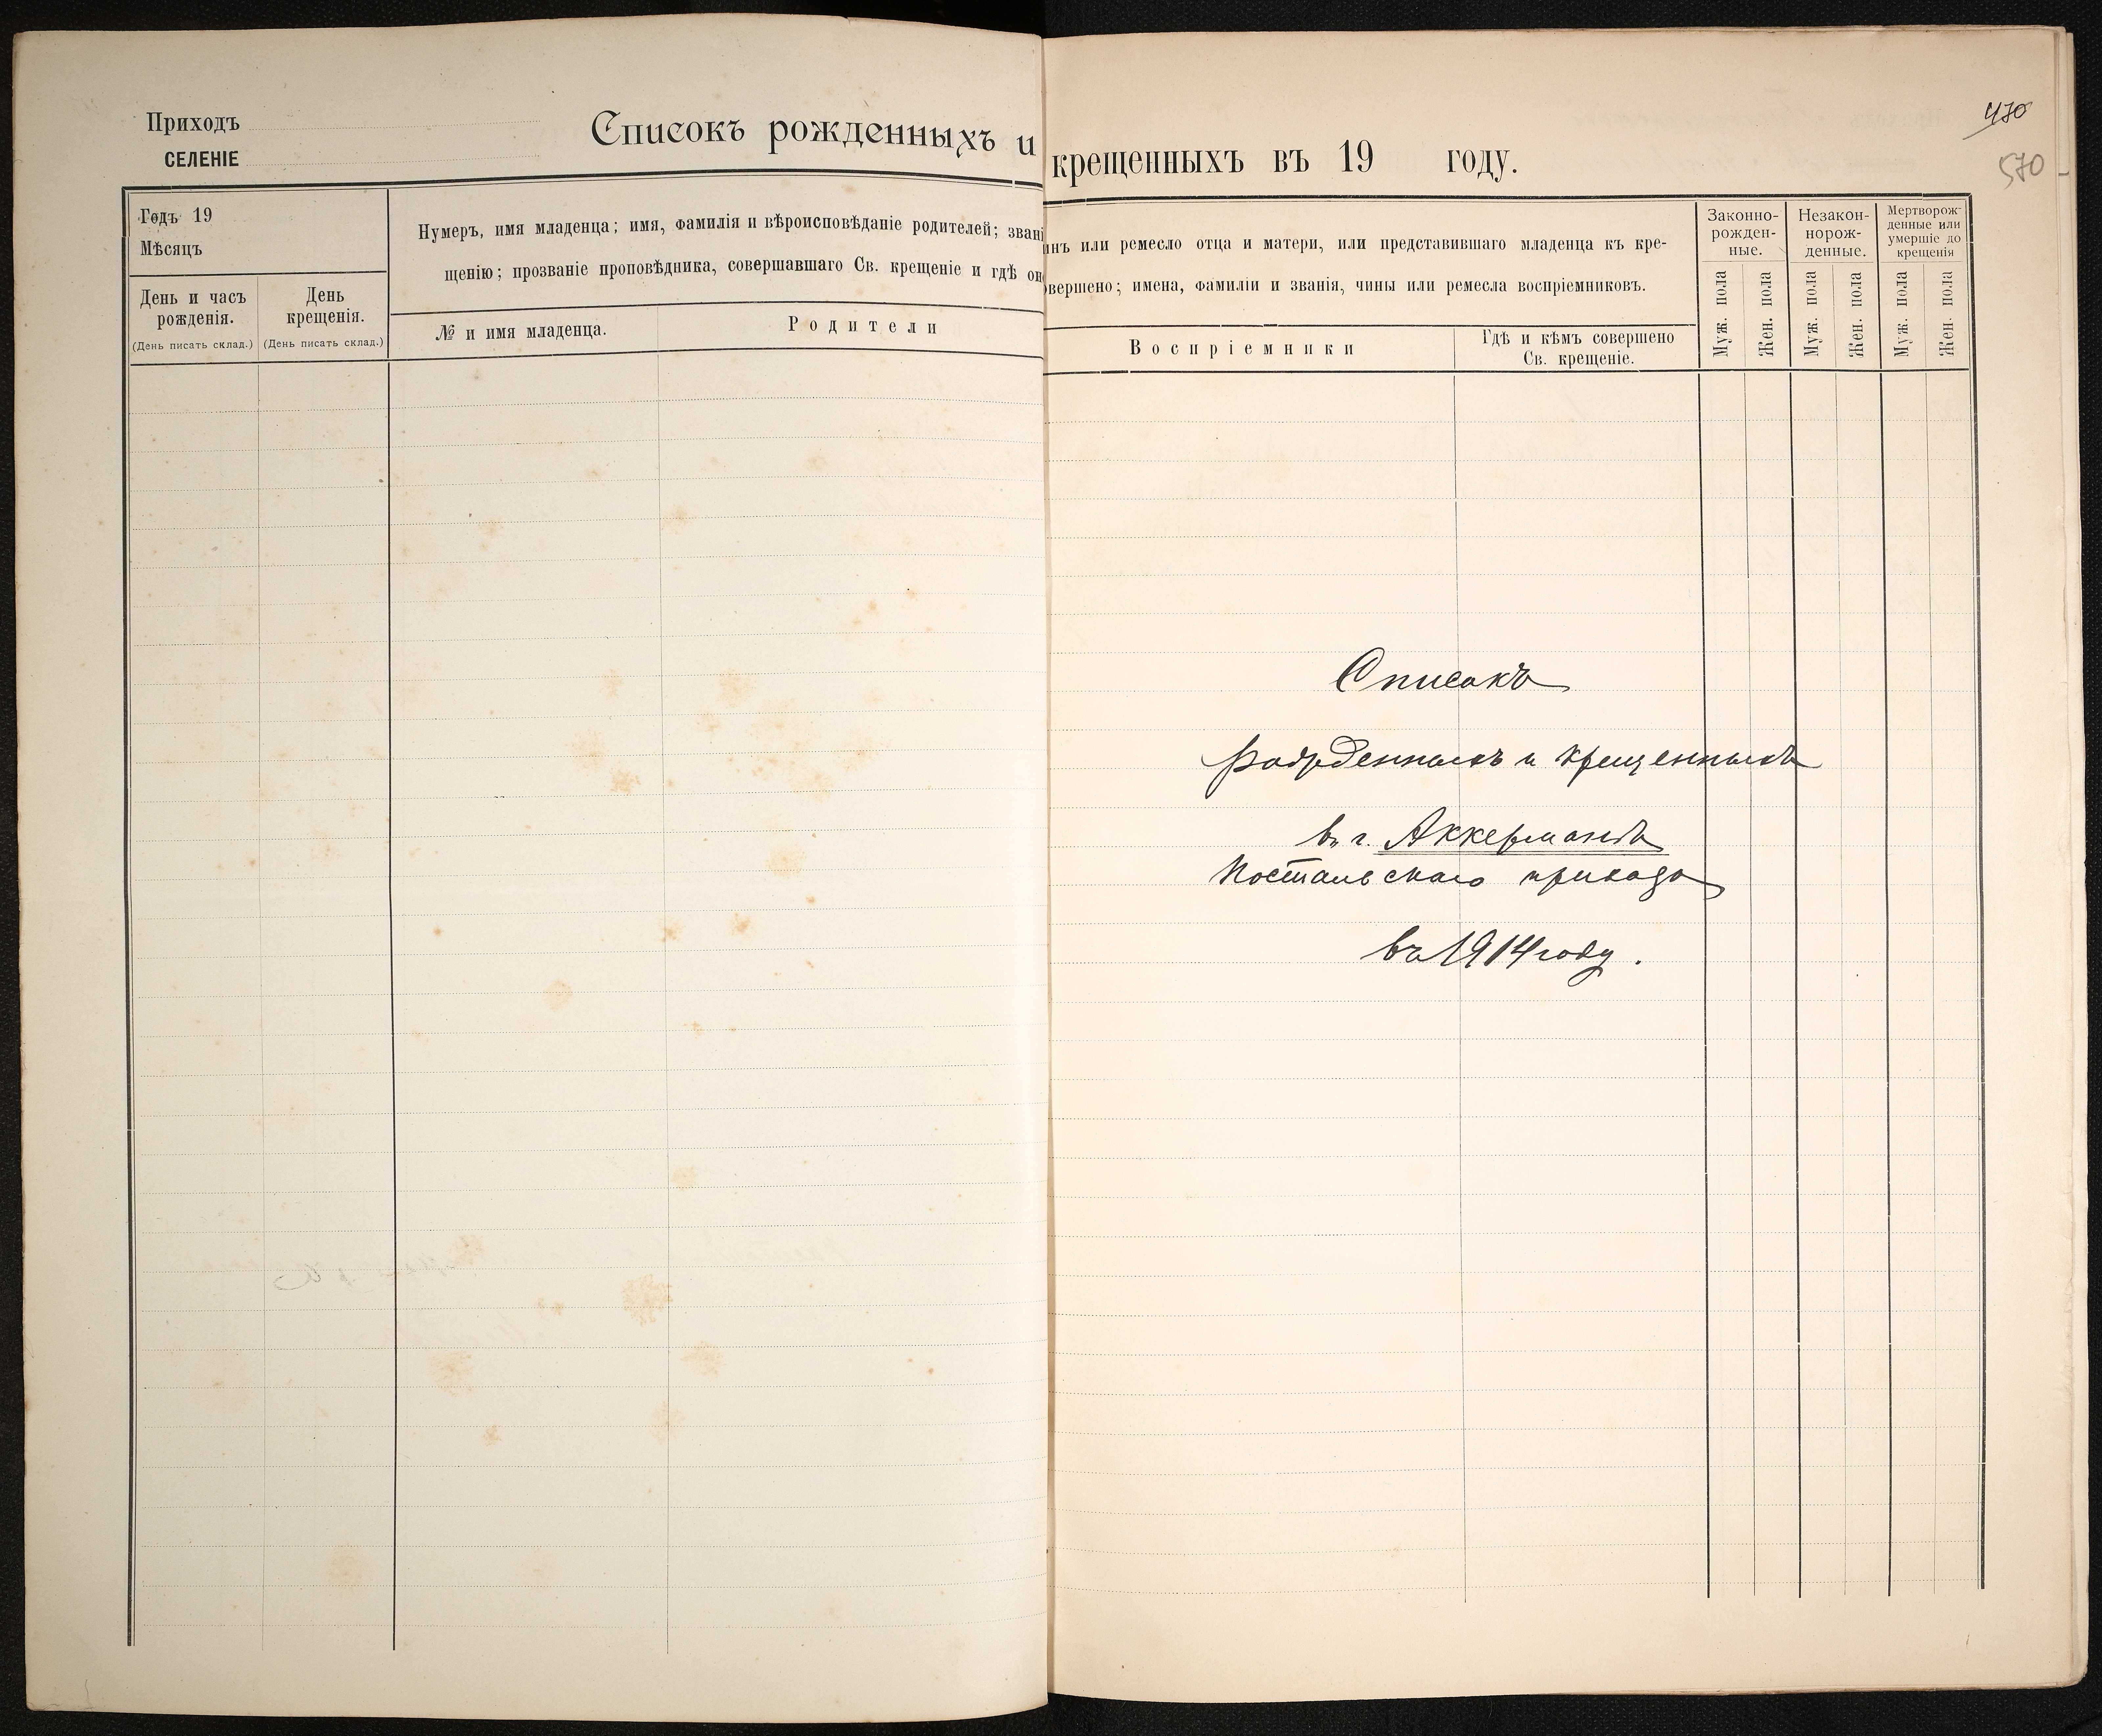 Приходъ
СЕЛЕНІЕ
Списокъ рожденныхъ и крещенныхъ въ 19 году.
430
570
Годъ 19
Мѣсяцъ
День и часъ рожденія.
(День писать склад.)
День крещенія.
(День писать склад.)
Нумеръ, имя младенца; имя, фамилія и вѣроисповѣданіе родителей; звані
щенію; прозваніе проповѣдника, совершавшаго Св. крещеніе и гдѣ он
№ и имя младенца.
Родители
инъ или ремесло отца и матери, или представившаго младенца къ кре-
овершено; имена, фамиліи и званія, чины или ремесла воспріемниковъ.
Воспріемники
Гдѣ и кѣмъ совершено
Св. крещеніе.
Законно-
рожден-
ные.
Незакон-
норож-
денные.
Мертворож-
денные или
умершіе до
крещенія
Муж. пола
Жен. пола
Муж. пола
Жен. пола
Муж. пола
Жен. пола
Списокъ
рожденныхъ и крещенныхъ
въ г. Аккерманѣ
Постальскаго прихода
въ 1914 году.